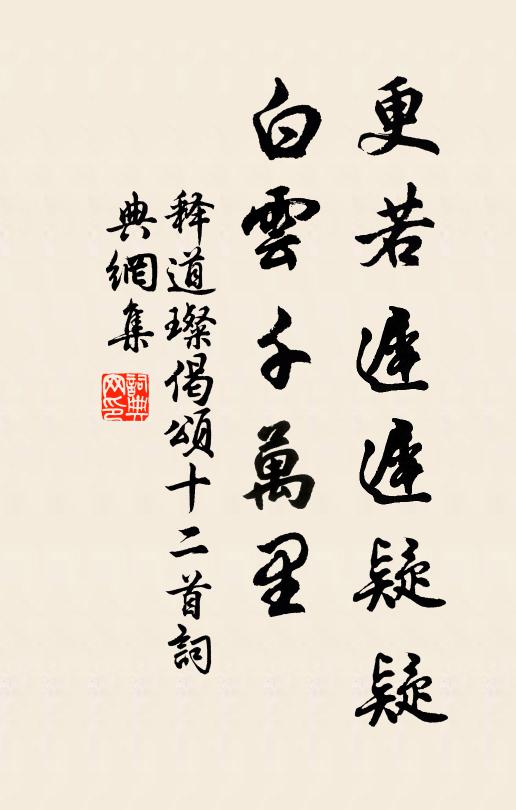 更若遲遲疑疑
白雲千萬里
释道璨偈頌十二首詞
典網集
詞典
网印